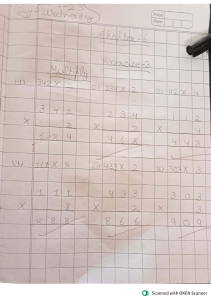 Page
Day - Wednesday Date
Multiply
342 X 2 234 X 2 112 X 4
3 4 2 2 3 4 1 1 2
X 2 X 2 X 4
6 8 4 4 6 8 4 4 8
111 X 8 433 X 2 303 X 3
1 1 1 4 3 3 3 0 3
X 8 X 2 X 3
8 8 8 8 6 6 9 0 9
Scanned with OKEN Scanner